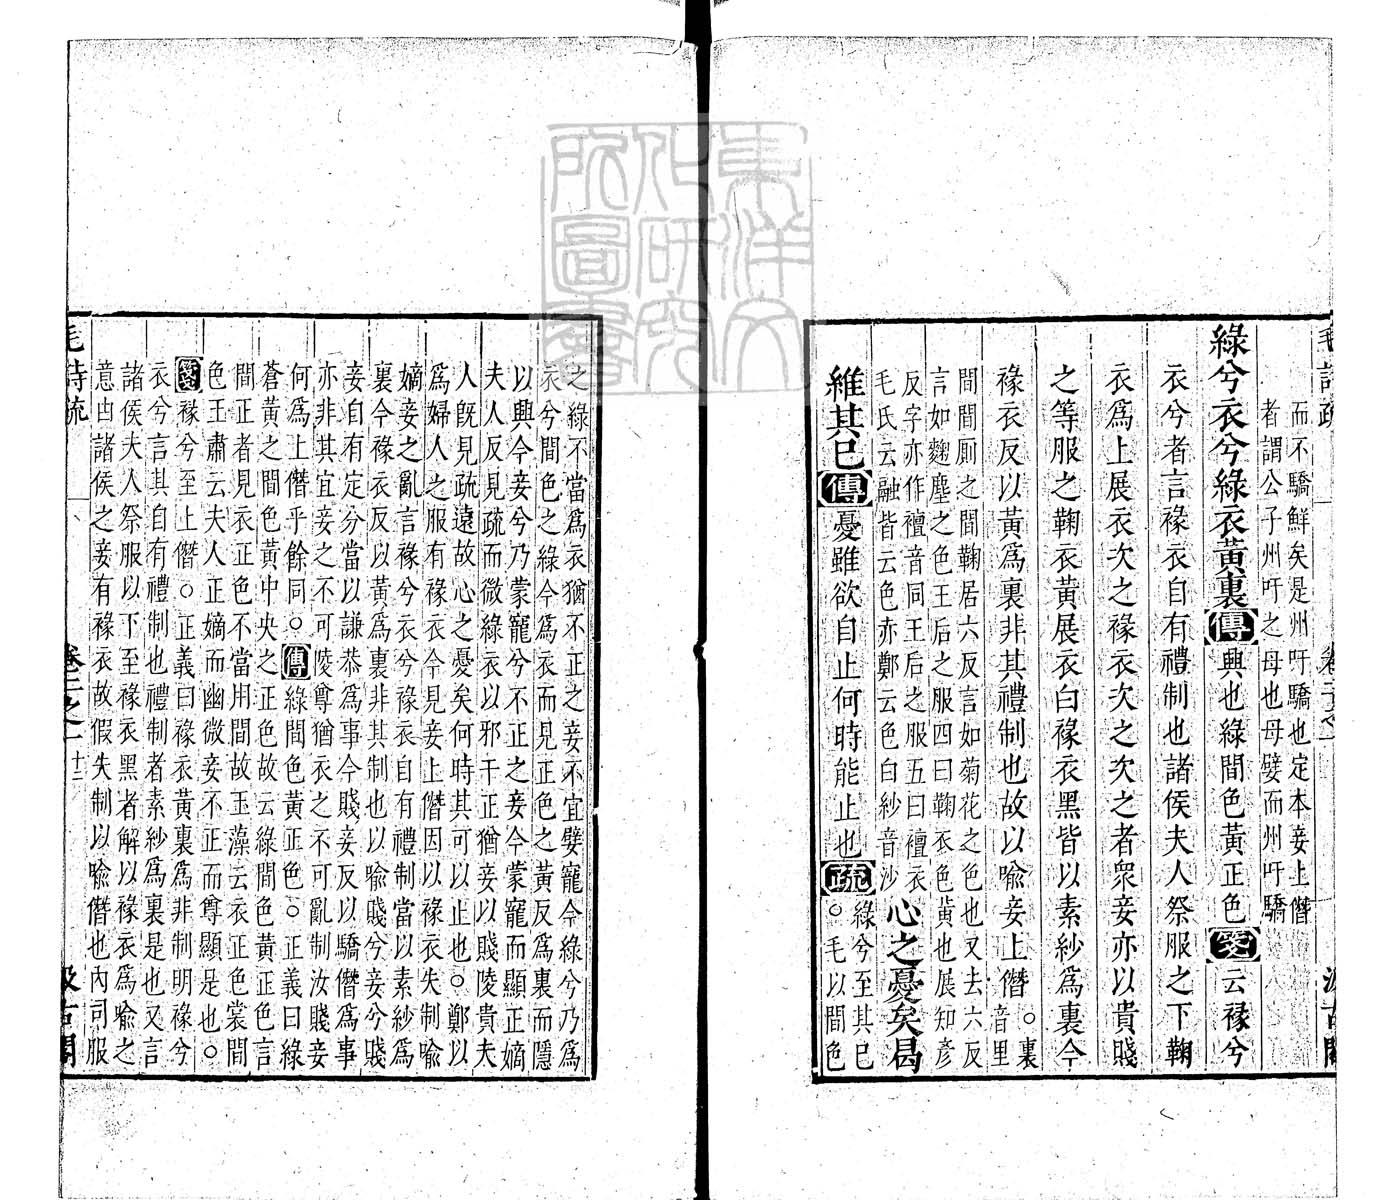 而不驕鮮矣是州吁驕也定本妾上僭
者謂公子州吁之母也母嬖而州吁驕
綠兮衣兮綠衣黃裏傳興也綠間色黃正色箋云褖兮
衣兮者言褖衣自有禮制也諸侯夫人祭服之下鞠
衣爲上展衣次之褖衣次之次之者衆妾亦以貴賤
之等服之鞠衣黃展衣白褖衣黑皆以素紗爲裏今
褖衣反以黃爲裏非其禮制也故以喻妾上僭○裏
音里
間間厠之間鞠居六反言如菊花之色也又去六反
言如麴塵之色王后之服四曰鞠衣色黃也展知彦
反字亦作襢音同王后之服五曰襢衣
毛氏云融皆云色赤鄭云色白紗音沙
心之憂矣曷
維其已傳憂雖欲自止何時能止也疏綠兮至其已
○毛以間色
之綠不當爲衣猶不正之妾不宜嬖寵今綠兮乃爲
衣兮間色之綠今爲衣而見正色之黃反爲裏而隱
以興今妾兮乃蒙寵兮不正之妾今蒙寵而顯正嫡
夫人反見疏而微綠衣以邪干正猶妾以賤陵貴夫
人旣見疏遠故心之憂矣何時其可以止也○鄭以
爲婦人之服有褖衣今見妾上僭因以褖衣失制喻
嫡妾之亂言褖兮衣兮褖衣自有禮制當以素紗爲
裏今褖衣反以黃爲裏非其制也以喻賤兮妾兮賤
妾自有定分當以謙恭爲事今賤妾反以驕僭爲事
亦非其宜妾之不可陵尊猶衣之不可亂制汝賤妾
何爲上僭乎餘同○傳綠間色黃正色○正義曰綠
蒼黃之間色黃中央之正色故云綠間色黃正色言
間正者見衣正色不當用間故玉藻云衣正色裳間
色王肅云夫人正嫡而幽微妾不正而尊顯是也○
箋褖兮至上僭○正義曰褖衣黃裏爲非制明褖兮
衣兮言其自有禮制也禮制者素紗爲裏是也又言
諸侯夫人祭服以下至褖衣黑者解以褖衣爲喻之
意由諸侯之妾有褖衣故假失制以喻僭也內司服
毛詩疏
卷二之一
十二
汲古閣